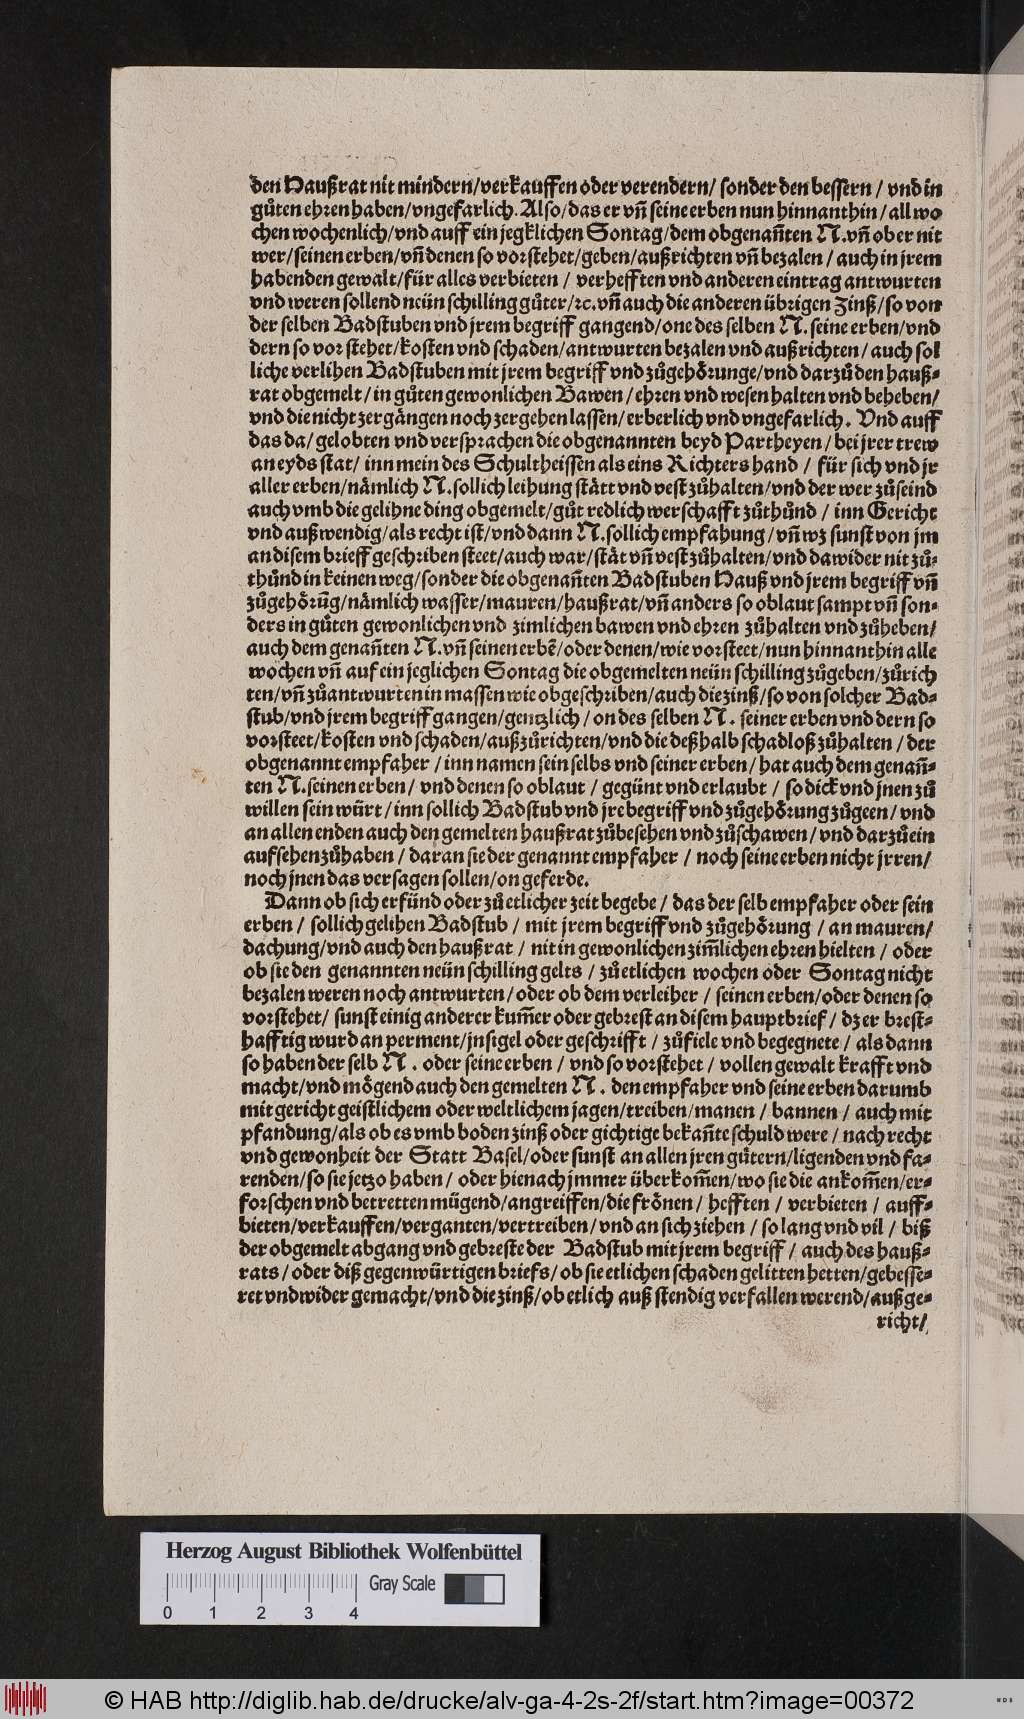 den Haußrat nit mindern/verkauffen oder verendern/ sonder den bessern / vnd in
gůten ehren haben/vngefarlich. Also/das er vñ seine erben nun hinnanthin/all wo
chen wochenlich/vnd auff ein jegklichen Sontag/dem obgenañten N.vñ ob er nit
wer/seinen erben/vñ denen so vorstehet/geben/außrichten vñ bezalen / auch in jrem
habenden gewalt/für alles verbieten / verhefften vnd anderen eintrag antwurten
vnd weren sollend neün schilling gůter/ꝛc.vñ auch die anderen übrigen Zinß/so von
der selben Badstuben vnd jrem begriff gangend/one des selben N.seine erben/vnd
dern so vor stehet/kosten vnd schaden/antwurten bezalen vnd außrichten/ auch sol
liche verlihen Badstuben mit jrem begriff vnd zůgehörunge/vnd darzů den hauß-
rat obgemelt/in gůten gewonlichen Bawen / ehren vnd wesen halten vnd beheben/
vnd die nicht zergängen noch zergehen lassen/erberlich vnd vngefarlich. Vnd auff
das da/gelobten vnd versprachen die obgenannten beyd Partheyen/bei jrer trew
an eyds stat/ inn mein des Schultheissen als eins Richters hand / für sich vnd jr
aller erben/nämlich N.sollich leihung stätt vnd vest zůhalten/vnd der wer zůseind
auch vmb die gelihne ding obgemelt/gůt redlich werschafft zůthůnd / inn Gericht
vnd außwendig/als recht ist/vnd dann N.sollich empfahung/vñ wz sunst von jm
an disem brieff geschriben steet/auch war/stät vñ vest zůhalten/vnd dawider nit zů-
thůnd in keinen weg/sonder die obgenañten Badstuben Hauß vnd jrem begriff vñ
zůgehörũg/nämlich wasser/mauren/haußrat/vñ anders so oblaut sampt vñ son-
ders in gůten gewonlichen vnd zimlichen bawen vnd ehren zůhalten vnd zůheben/
auch dem genañten N.vñ seinen erbẽ/oder denen/wie vorsteet/nun hinnanthin alle
wochen vñ auf ein jeglichen Sontag die obgemelten neün schilling zůgeben/zůrich
ten/vñ zůantwurten in massen wie obgeschriben/auch die zinß/so von solcher Bad-
stub/vnd jrem begriff gangen/gentzlich / on des selben N. seiner erben vnd dern so
vorsteet/kosten vnd schaden/außzůrichten/vnd die deßhalb schadloß zůhalten / der
obgenannt empfaher / inn namen sein selbs vnd seiner erben/ hat auch dem genañ-
ten N.seinen erben/ vnd denen so oblaut / gegünt vnd erlaubt / so dick vnd jnen zů
willen sein würt / inn sollich Badstub vnd jre begriff vnd zůgehörung zůgeen/ vnd
an allen enden auch den gemelten haußrat zůbesehen vnd zůschawen/ vnd darzů ein
aufsehen zůhaben / daran sie der genannt empfaher / noch seine erben nicht jrren/
noch jnen das versagen sollen/on geferde.
Dann ob sich erfünd oder zů etlicher zeit begebe / das der selb empfaher oder sein
erben / sollich gelihen Badstub / mit jrem begriff vnd zůgehörung / an mauren/
dachung/vnd auch den haußrat / nit in gewonlichen zim̃lichen ehren hielten / oder
ob sie den genannten neün schilling gelts / zů etlichen wochen oder Sontag nicht
bezalen weren noch antwurten/oder ob dem verleiher / seinen erben/oder denen so
vorstehet/ sunst einig anderer kum̃er oder gebrest an disem hauptbrief/ dz er brest-
hafftig wurd an perment/jnsigel oder geschrifft / zůfiele vnd begegnete / als dann
so haben der selb N. oder seine erben / vnd so vorstehet / vollen gewalt krafft vnd
macht/vnd mögend auch den gemelten N. den empfaher vnd seine erben darumb
mit gericht geistlichem oder weltlichem jagen/treiben/manen / bannen / auch mit
pfandung/als ob es vmb boden zinß oder gichtige bekañte schuld were / nach recht
vnd gewonheit der Statt Basel/oder sunst an allen jren gütern/ligenden vnd fa-
renden/so sie jetzo haben / oder hienach jmmer überkom̃en/wo sie die ankom̃en/er-
forschen vnd betretten mügend/angreiffen/die frönen/ hefften / verbieten / auff-
bieten/verkauffen/verganten/vertreiben/ vnd an sich ziehen / so lang vnd vil / biß
der obgemelt abgang vnd gebreste der Badstub mit jrem begriff / auch des hauß-
rats / oder diß gegenwürtigen briefs/ ob sie etlichen schaden gelitten hetten/gebesse-
ret vnd wider gemacht/vnd die zinß/ob etlich auß stendig verfallen werend/außge-
richt/
Herzog August Bibliothek Wolfenbüttel
Gray Scale
0 1 2 3 4
© HAB http://diglib.hab.de/drucke/alv-ga-4-2s-2f/start.htm?image=00372